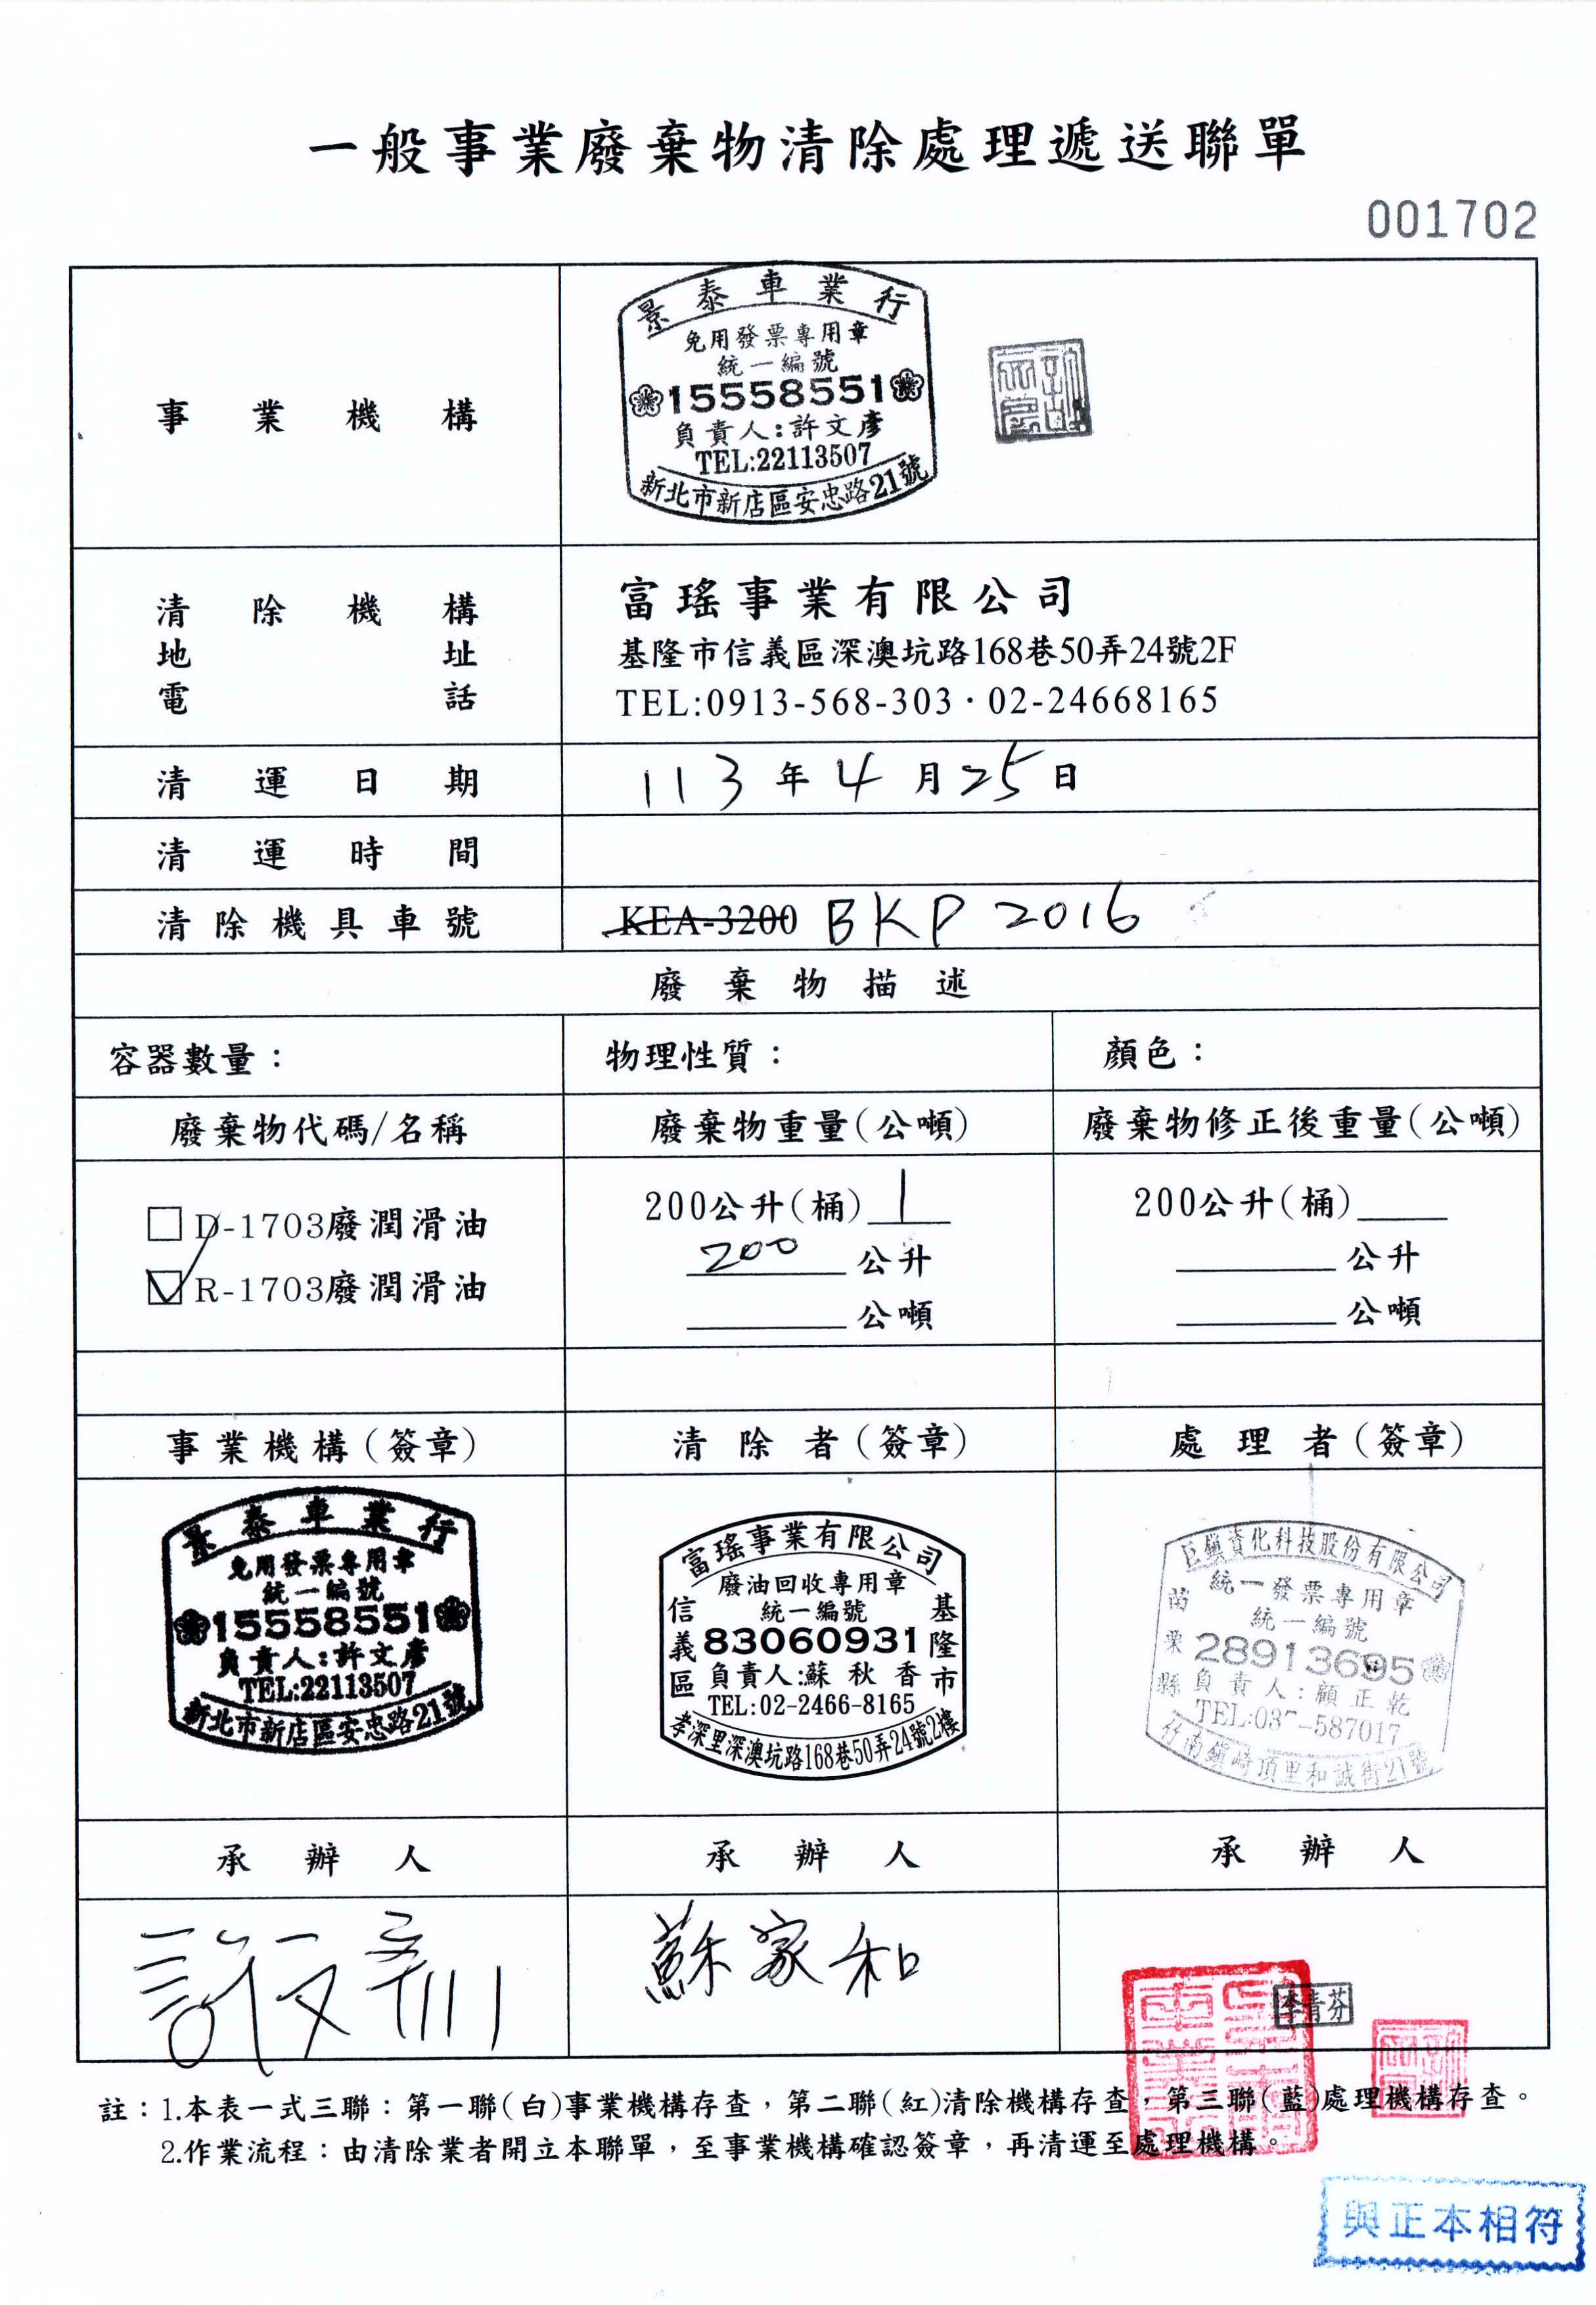 一般事業廢棄物清除處理遞送聯單
001702
事業機構
景泰車業行
免用發票專用章
統一編號
15558551
負責人:許文彥
TEL:22113507
新北市新店區安忠路21號
清除機構
地址
電話
富瑤事業有限公司
基隆市信義區深澳坑路168巷50弄24號2F
TEL:0913-568-303·02-24668165
清運日期
113年4月25日
清運時間
清除機具車號
KEA-3200 BKP 2016
廢棄物描述
容器數量：
物理性質：
顏色：
廢棄物代碼/名稱
廢棄物重量(公噸)
廢棄物修正後重量(公噸)
D-1703廢潤滑油
R-1703廢潤滑油
200公升(桶) 1
200 公升
公噸
200公升(桶)
公升
公噸
事業機構(簽章)
清除者(簽章)
處理者(簽章)
景泰車業行
免用發票專用章
統一編號
15558551
負責人:許文彥
TEL:22113507
新北市新店區安忠路21號
富瑤事業有限公司
廢油回收專用章
統一編號
83060931
負責人:蘇秋香
TEL:02-2466-8165
基隆市
信義區
孝深里深澳坑路168巷50弄24號2樓
巨鎮資化科技股份有限公司
統一發票專用章
統一編號
28913695
負責人:顧正乾
TEL:037-587017
苗栗縣
竹南鎮崎頂里和誠街21號
承辦人
承辦人
承辦人
許文彥
蘇家和
李青芬
註：1.本表一式三聯：第一聯(白)事業機構存查，第二聯(紅)清除機構存查，第三聯(藍)處理機構存查。
2.作業流程：由清除業者開立本聯單，至事業機構確認簽章，再清運至處理機構。
與正本相符